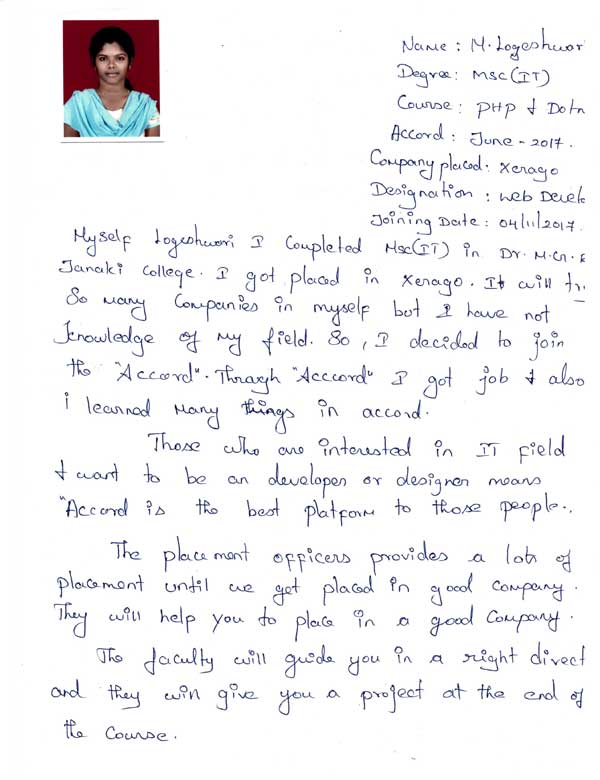 Name : M. Logeshwar
Degree : MSC (IT)
Course : PHP & Dotn
Accord : June - 2017.
Company placed : Xerago
Designation : Web Devel
Joining Date : 04/11/2017.
Myself Logeshwari I Completed Msc(IT) in Dr. M.G.R
Janaki College. I got placed in Xerago. It will tr
So Many Companies in myself but I have not
Knowledge of My field. So, I decided to join
the "Accord". Through "Acccord" I got job & also
i learned Many things in accord.
Those who are interested in IT field
& want to be an developer or designer means
"Accord is the best platform to those people..
The placement officers provides a lots of
placement until we get placed in good company.
They will help you to place in a good Company.
The faculty will guide you in a right direct
and they will give you a project at the end of
the Course.